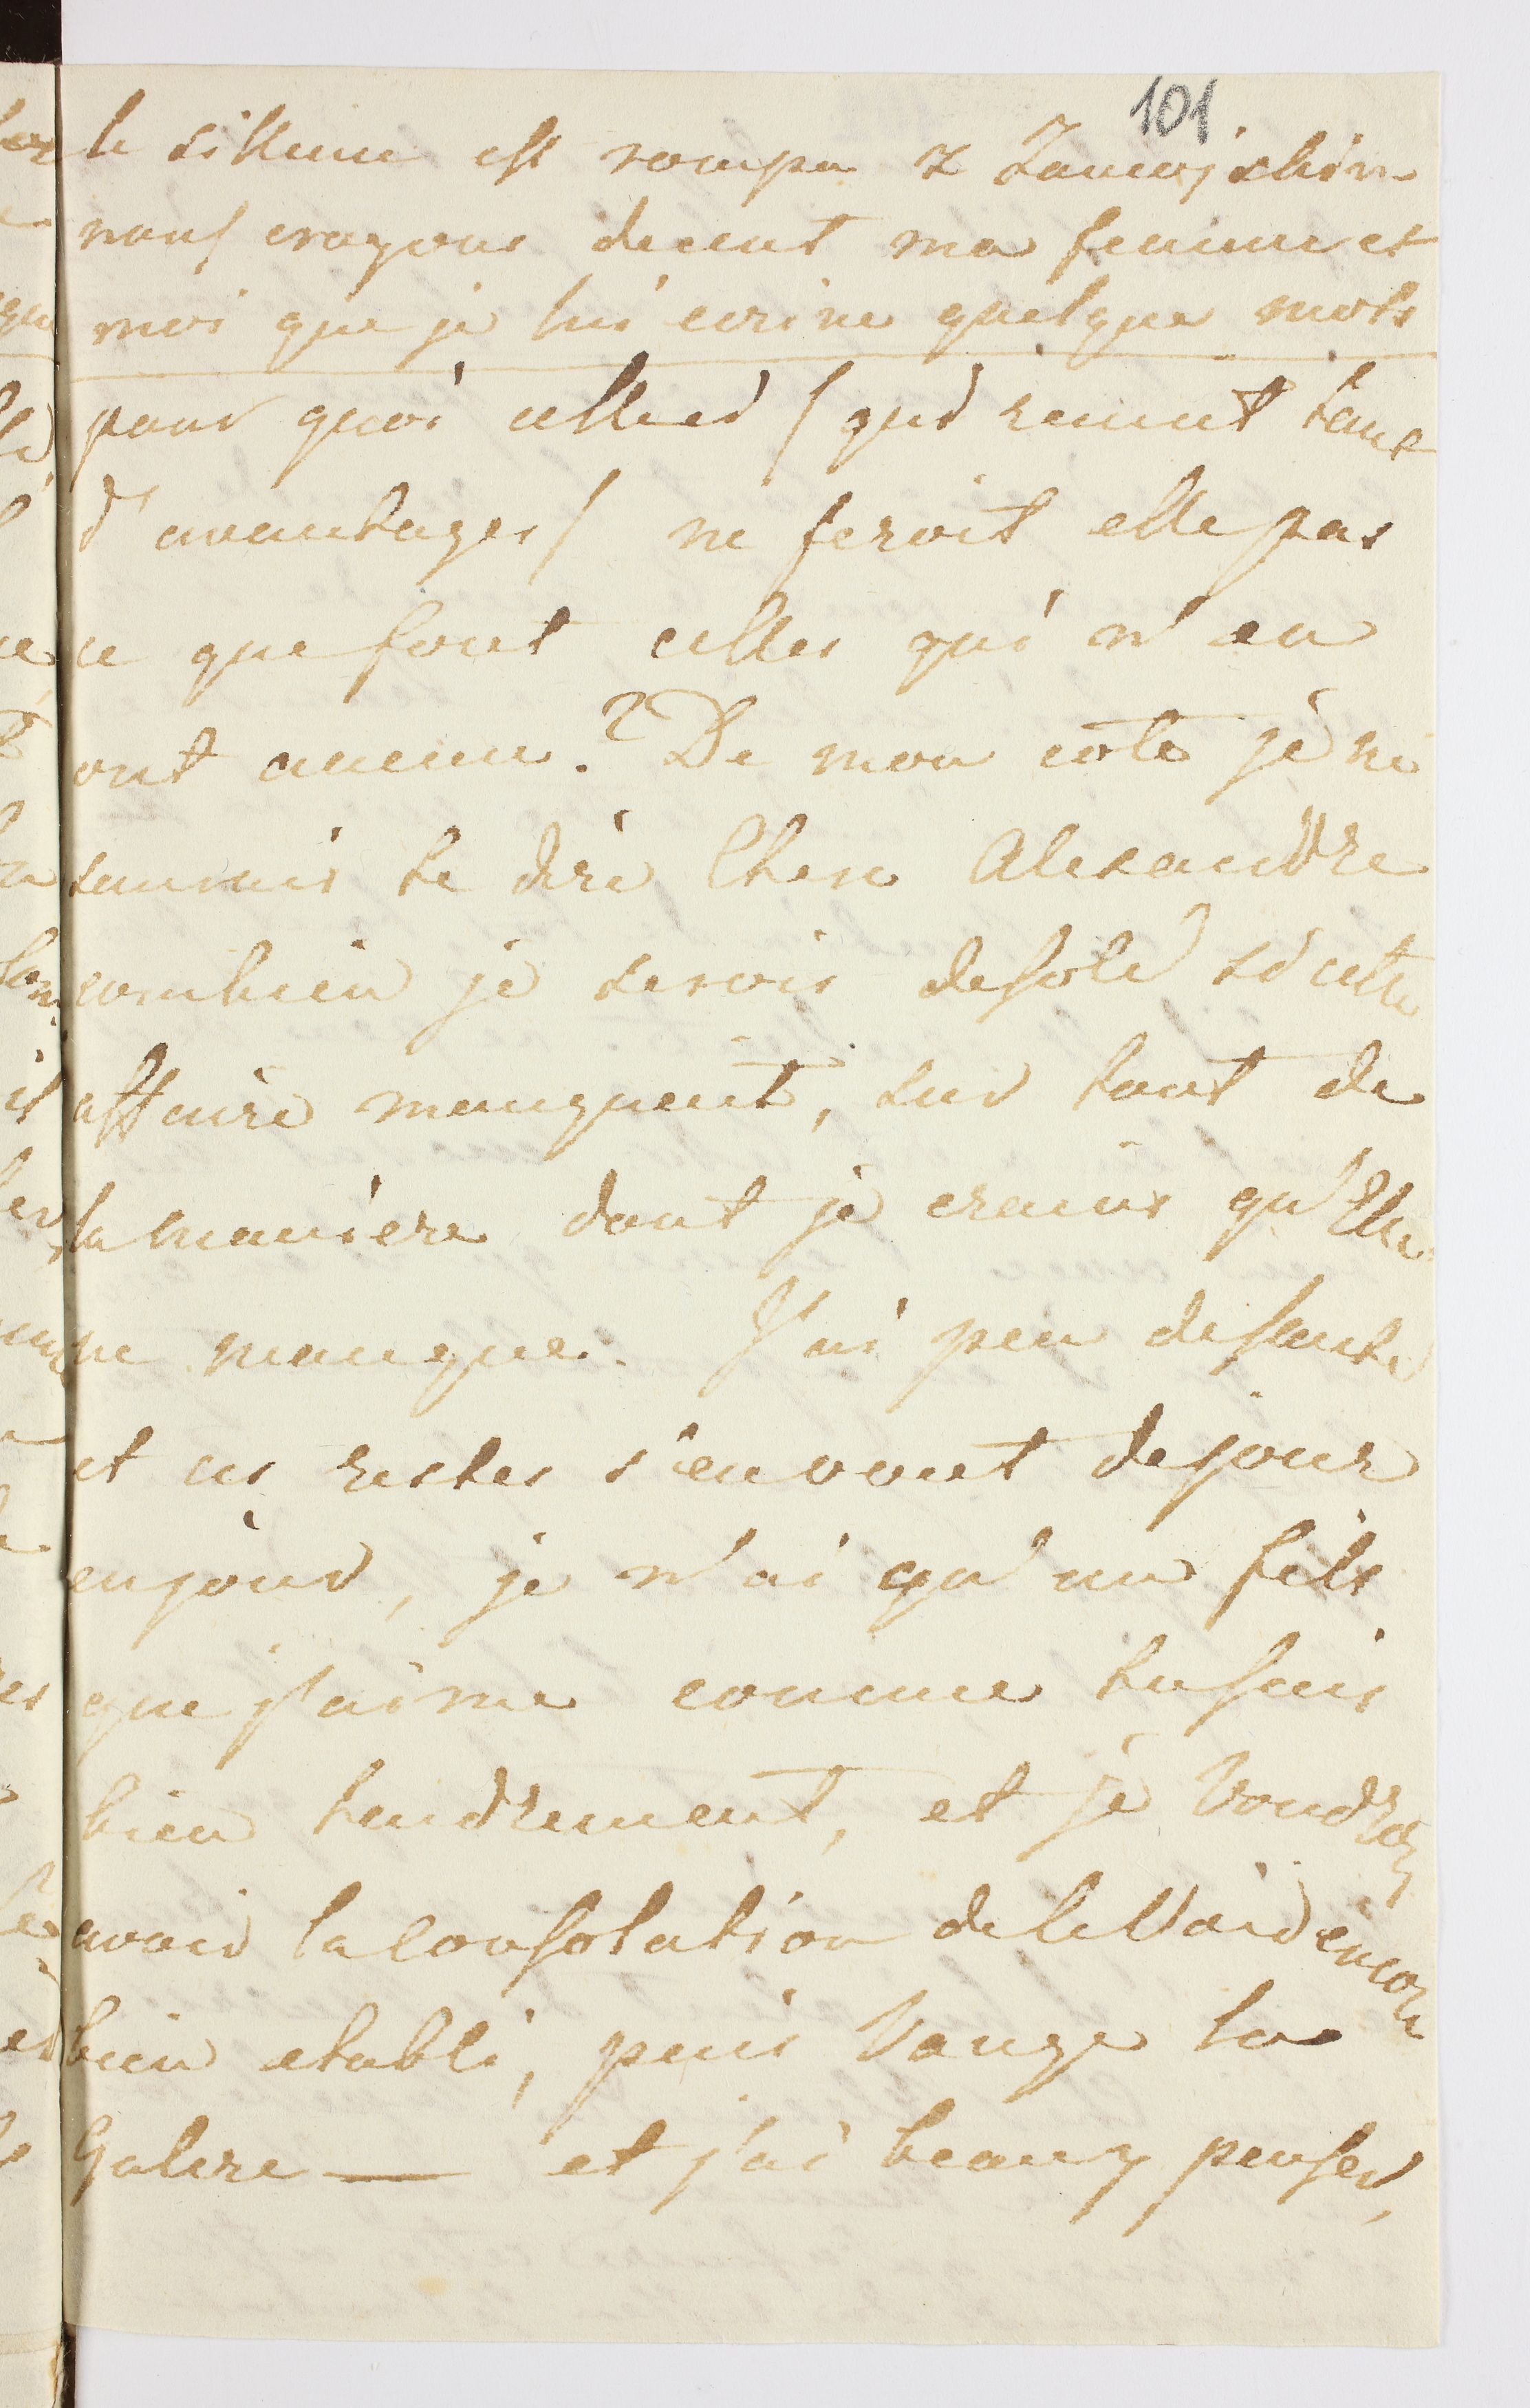 101
le sillence est rompu z Zamojskim
nous croyons decent ma femme et
moi que je lui ecrive quelque mots
pour quoi celle ci / qui reunit tant
d'avantages / ne feroit elle pas
ce que font celles qui n'en
ont aucun.? De mon coté je ne
saurais te dire Cher Alexandre
combien je serois desolé si cette
affaire manquent, sur tout de
la maniere dont je crains qu'Elle
ne manque. J'ai peu de santé
et ces restes s'en vont de jour
en jour, je n'ai qu'un fils
que j'aime comme tu sais
bien tendrement, et je Voudrois
avoir la Consolation de le Voir encore
bien etabli, puis Vouge la
Galere — et j'ai beau y penser,